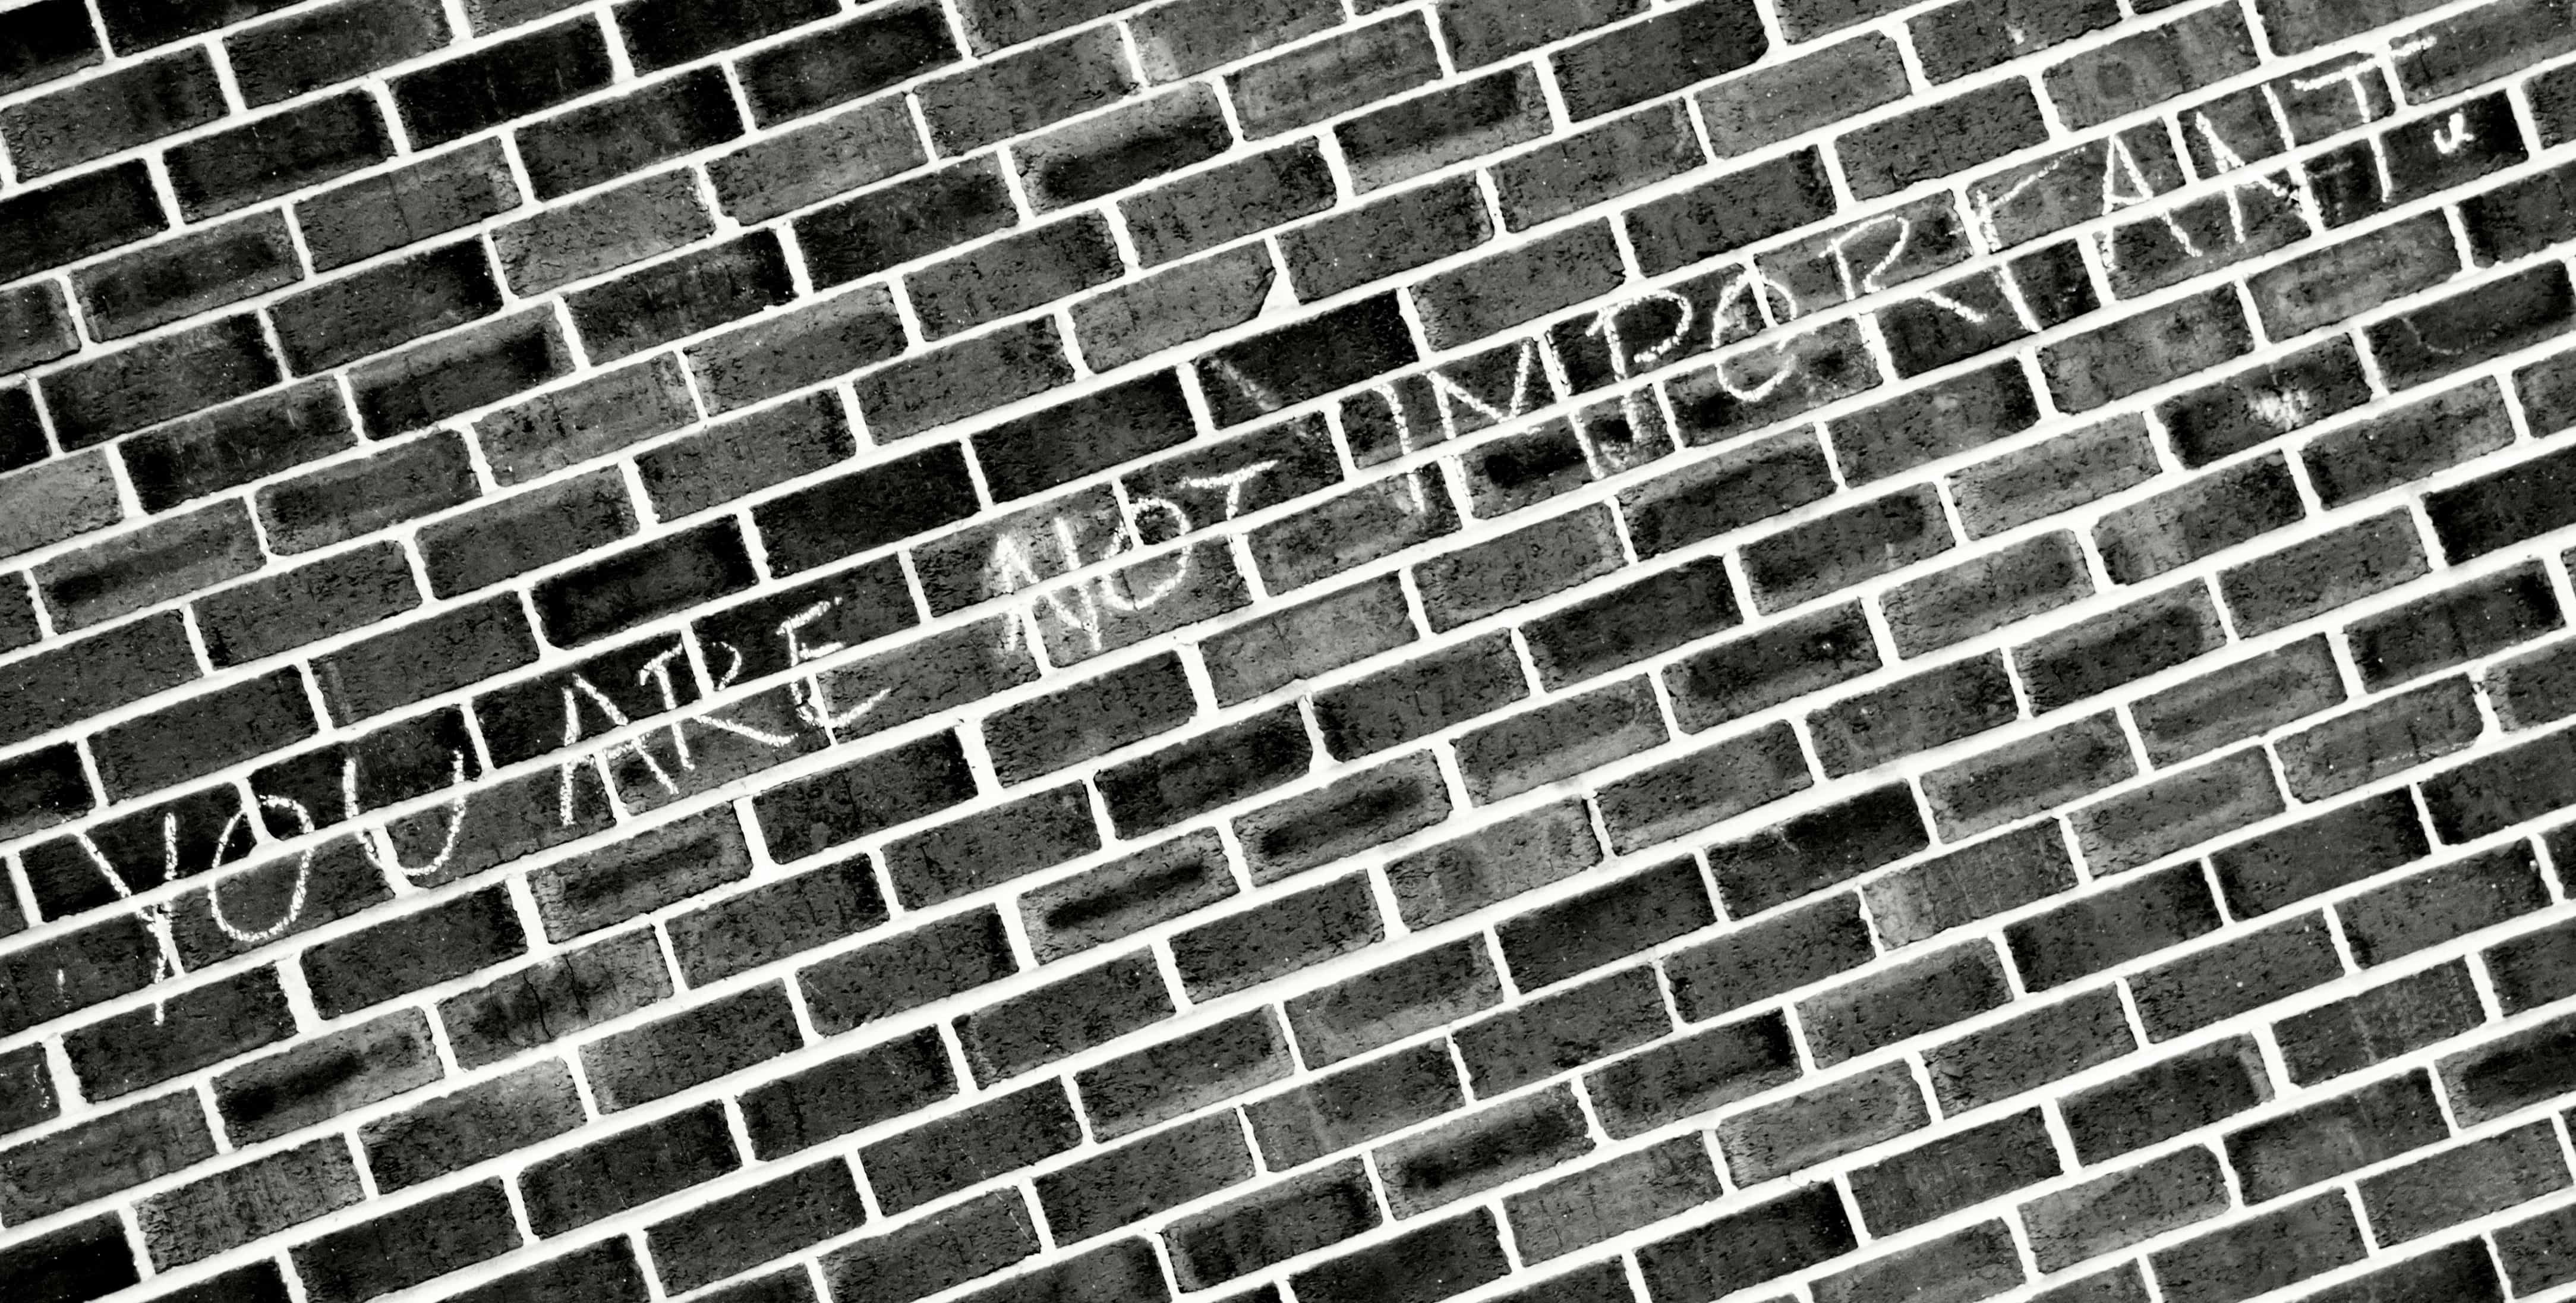 YOU ARE NOT IMPORTANT